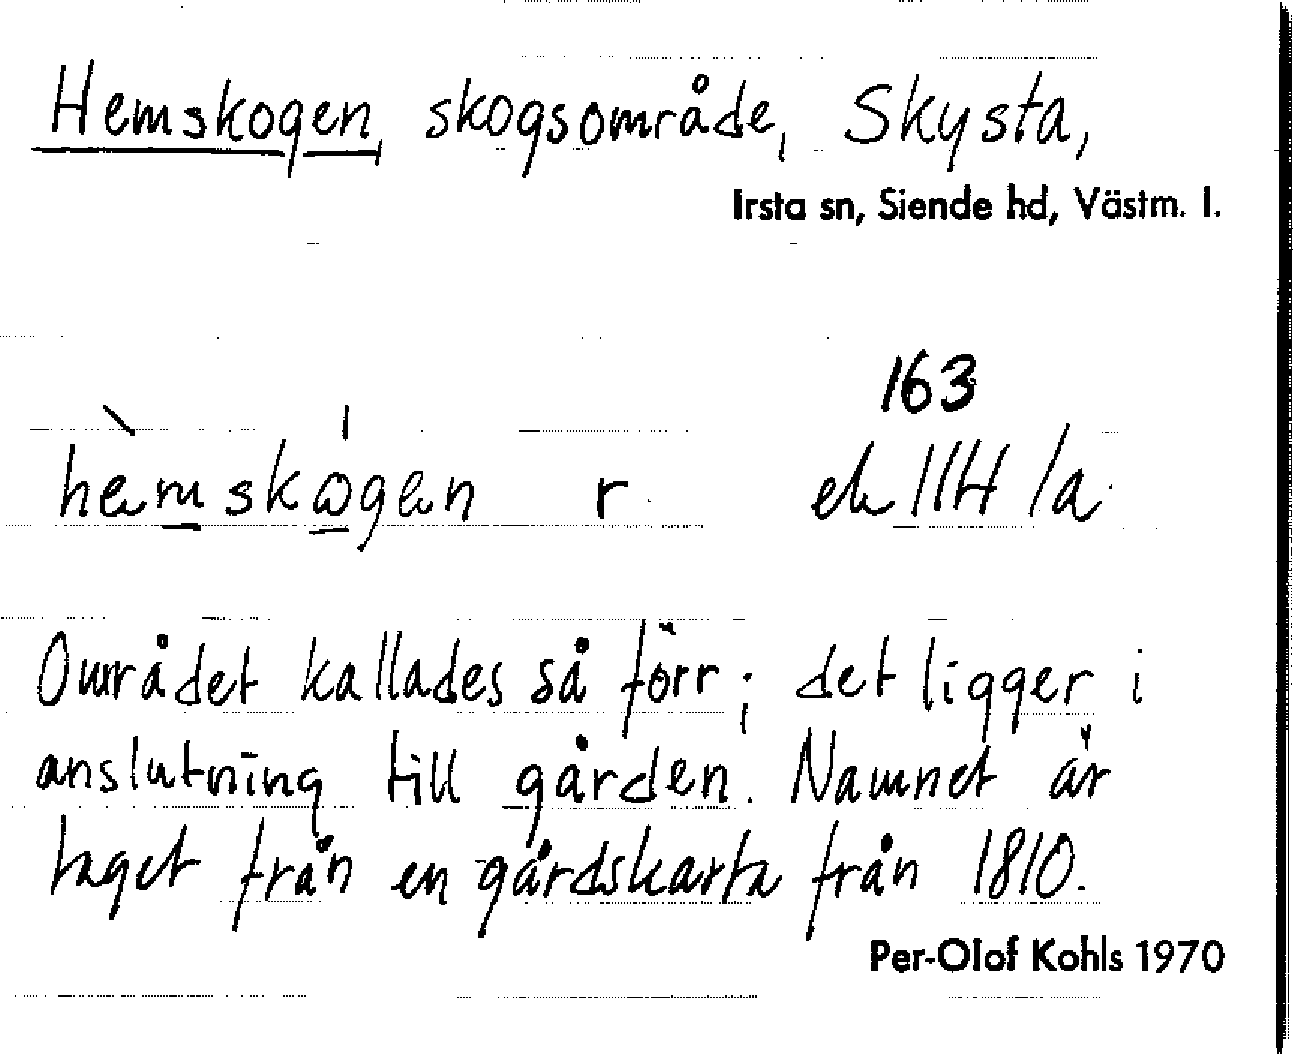 Hemskogen, skogsområde, Skysta,
Irsta sn, Siende hd, Västm. l.
163
hemskogen r ek 11H /a
Området kallades så förr; det ligger i
anslutning till gården. Namnet är
taget från en gårdskarta från 1810.
Per-Olof Kohls 1970